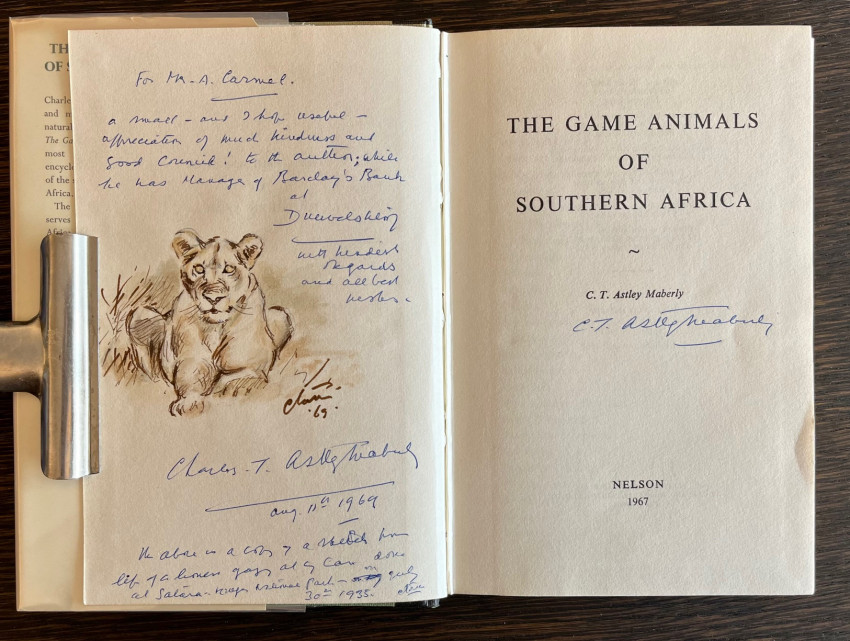 TH
OF S
Charle
and n
natural
The Ga
most
encyclo
of the s
Africa.
The
serves
For Mr. A. Carmel.
a small - and I hope useful -
appreciation of much kindness and
Good Council! to the author; while
he was Manager of Barclay's Bank
at
Duivelskloof
with kindest
regards
and all best
wishes.
'69.
Charles. T. Astley Maberly
Aug. 11th 1969
The above is a copy of a sketch from
life of a lioness gazing at my car done
at Satara - Kruger National Park - on July
30th 1935.
THE GAME ANIMALS
OF
SOUTHERN AFRICA
~
C. T. Astley Maberly
C.T. Astley Maberly
NELSON
1967